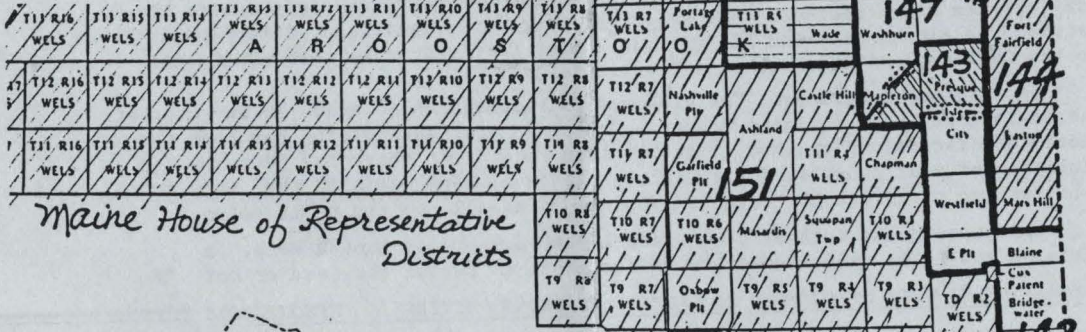 T13 R16 WELS
T13 R15 WELS
T13 R14 WELS
T13 R13 WELS
T13 R12 WELS
T13 R11 WELS
T13 R10 WELS
T13 R9 WELS
T13 R8 WELS
T13 R7 WELS
Portage Lake
T13 R5 WELS
Wade
Washburn
147
Fort Fairfield
A R O O S T O O K
T12 R16 WELS
T12 R15 WELS
T12 R14 WELS
T12 R13 WELS
T12 R12 WELS
T12 R11 WELS
T12 R10 WELS
T12 R9 WELS
T12 R8 WELS
T12 R7 WELS
Nashville Plt
Ashland
Castle Hill
Mapleton
143
Presque Isle
City
144
Easton
T11 R16 WELS
T11 R15 WELS
T11 R14 WELS
T11 R13 WELS
T11 R12 WELS
T11 R11 WELS
T11 R10 WELS
T11 R9 WELS
T11 R8 WELS
T11 R7 WELS
Garfield Plt
151
T11 R4 WELS
Chapman
Westfield
Mars Hill
Maine House of Representative
Districts
T10 R8 WELS
T10 R7 WELS
T10 R6 WELS
Masardis
Squapan Twp
T10 R3 WELS
E Plt
Blaine
T9 R8 WELS
T9 R7 WELS
Oxbow Plt
T9 R5 WELS
T9 R4 WELS
T9 R3 WELS
TD R2 WELS
Cox Patent
Bridge-
water